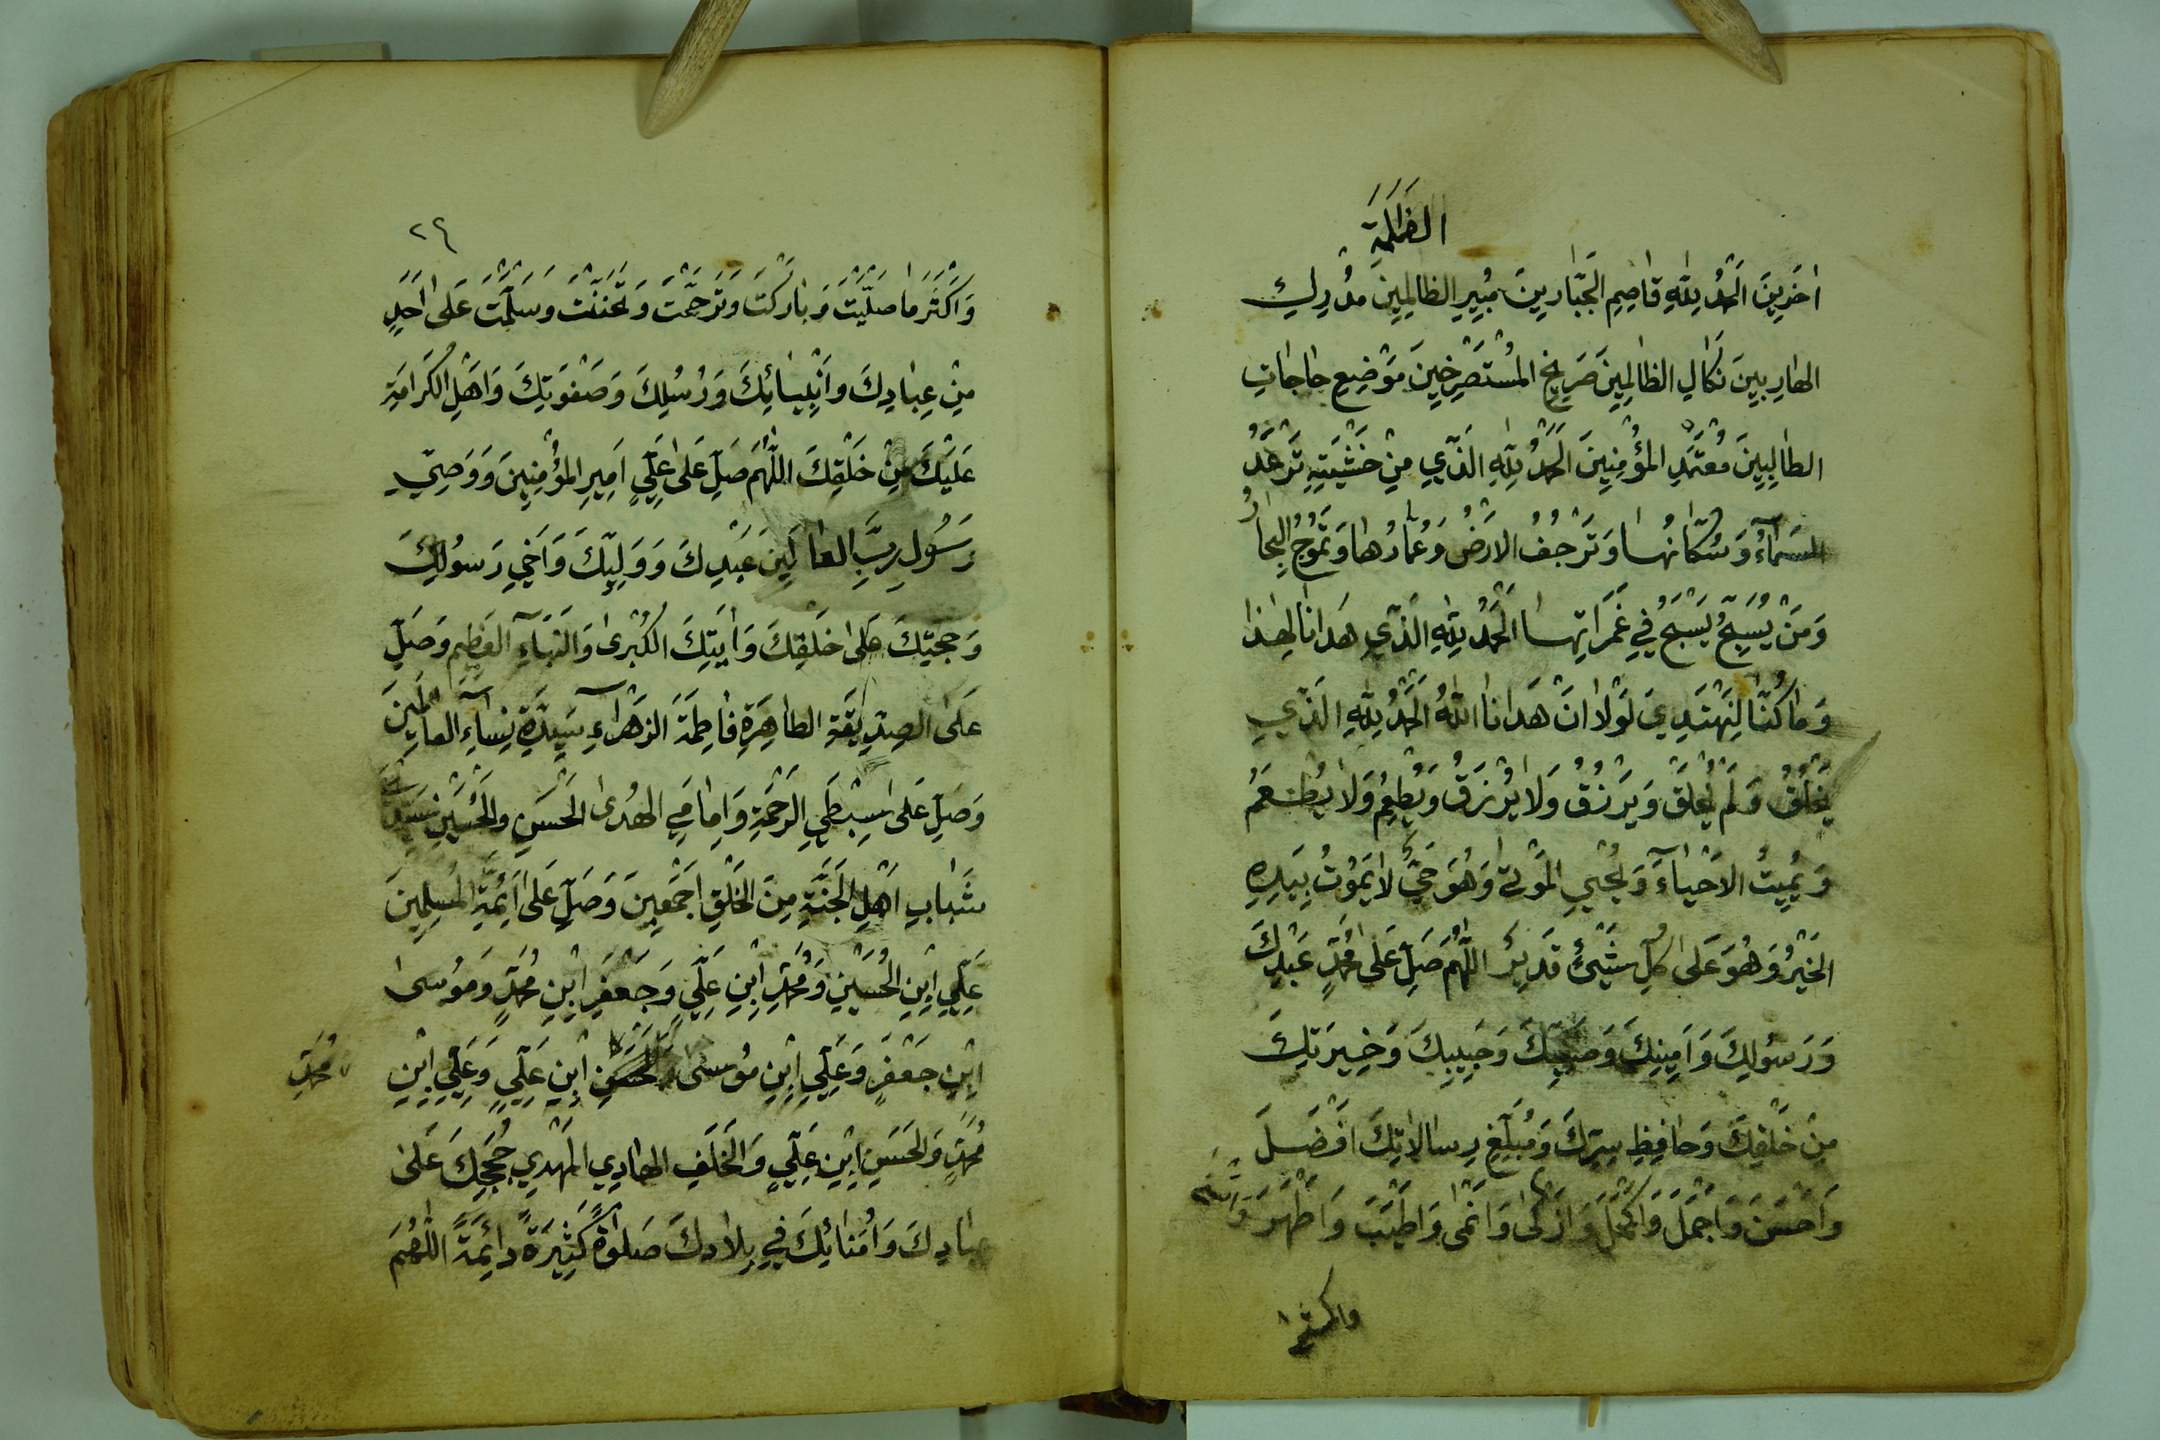 الظَلَمَةِ
اخَرِينَ اَلْحَمْدُ لِلّٰهِ قاصِمِ الْجَبّارِينَ مُبِيرِ الظالِمِينَ مُدْرِكِ
الهارِبِينَ نَكالِ الظالِمِينَ صَرِيخِ المُسْتَصْرِخِينَ مَوْضِعِ حاجاتِ
الطالِبِينَ مُعْتَمَدِ المُؤْمِنِينَ اَلْحَمْدُ لِلّٰهِ الَّذِي مِنْ خَشْيَتِهِ تَرْعَدُ
السَماءُ وَسُكّانُها وَتَرْجُفُ الارْضُ وَعُمّارُها وَتَمُوجُ البِحارُ
وَمَنْ يُسَبِّحُ يَسْبَحُ فِي غَمَراتِها اَلْحَمْدُ لِلّٰهِ الَّذِي هَدانا لِهٰذا
وَما كُنّا لِنَهْتَدِيَ لَوْلا انْ هَدانا اللّٰهُ اَلْحَمْدُ لِلّٰهِ الَّذِي
يَخْلُقُ وَلَمْ يُخْلَقْ وَيَرْزُقُ وَلا يُرْزَقُ وَيُطْعِمُ وَلا يُطْعَمُ
وَيُمِيتُ الاَحْياءَ وَيُحْيِي المَوْتى وَهُوَ حَيٌّ لا يَمُوتُ بِيَدِهِ
الخَيْرُ وَهُوَ عَلى كُلِّ شَيْئٍ قَدِيرٌ اللّٰهُمَّ صَلِّ عَلى مُحَمَّدٍ عَبْدِكَ
وَرَسُولِكَ وَاَمِينِكَ وَصَفِيِّكَ وَحَبِيبِكَ وَخِيَرَتِكَ
مِنْ خَلْقِكَ وَحافِظِ سِرِّكَ وَمُبَلِّغِ رِسالاتِكَ افْضَلَ
وَاَحْسَنَ وَاَجْمَلَ وَاَكْمَلَ وَاَزْكى وَاَنْمى وَاَطْيَبَ وَاَطْهَرَ وَاَسْنى
واكثر
٢٩
وَاَكْثَرَ ما صَلَّيْتَ وَبارَكْتَ وَتَرَحَّمْتَ وَتَحَنَّنْتَ وَسَلَّمْتَ عَلى اَحَدٍ
مِنْ عِبادِكَ وانْبِيائِكَ وَرُسُلِكَ وَصَفْوَتِكَ وَاهْلِ الكَرامَةِ
عَلَيْكَ مِنْ خَلْقِكَ اللّٰهُمَّ صَلِّ عَلى عَلِيٍّ اَمِيرِ المُؤْمِنِينَ وَوَصِيِّ
رَسُولِ رَبِّ العالَمِينَ عَبْدِكَ وَوَلِيِّكَ وَاَخِي رَسُولِكَ
وَحُجَّتِكَ عَلى خَلْقِكَ وَايَتِكَ الكُبْرى وَالنَبَاءِ العَظِيمِ وَصَلِّ
عَلى الصِدِّيقَةِ الطاهِرَةِ فاطِمَةَ الزَهْراءِ سَيِّدَةِ نِساءِ العالَمِينَ
وَصَلِّ عَلى سِبْطَيِ الرَحْمَةِ وَاِمامَيِ الهُدى اَلْحَسَنِ وَالْحُسَيْنِ سَيِّدَيْ
شَبابِ اَهْلِ الْجَنَّةِ مِنَ الْخَلْقِ اَجْمَعِينَ وَصَلِّ عَلى اَئِمَّةِ المُسْلِمِينَ
عَلِيِّ ابْنِ الْحُسَيْنِ وَمُحَمَّدِ ابْنِ عَلِيٍّ وَجَعْفَرِ ابْنِ مُحَمَّدٍ وَمُوسى
ابْنِ جَعْفَرٍ وَعَلِيِّ ابْنِ مُوسى ابْنِ عَلِيٍّ وَعَلِيِّ ابْنِ
مُحَمَّدِ
مُحَمَّدٍ وَالْحَسَنِ ابْنِ عَلِيٍّ وَالْخَلَفِ الهادِي المَهْدِي حُجَجِكَ عَلى
عِبادِكَ وَاُمَنائِكَ فِي بِلادِكَ صَلٰوةً كَثِيرَةً دائِمَةً اَللّٰهُمَّ